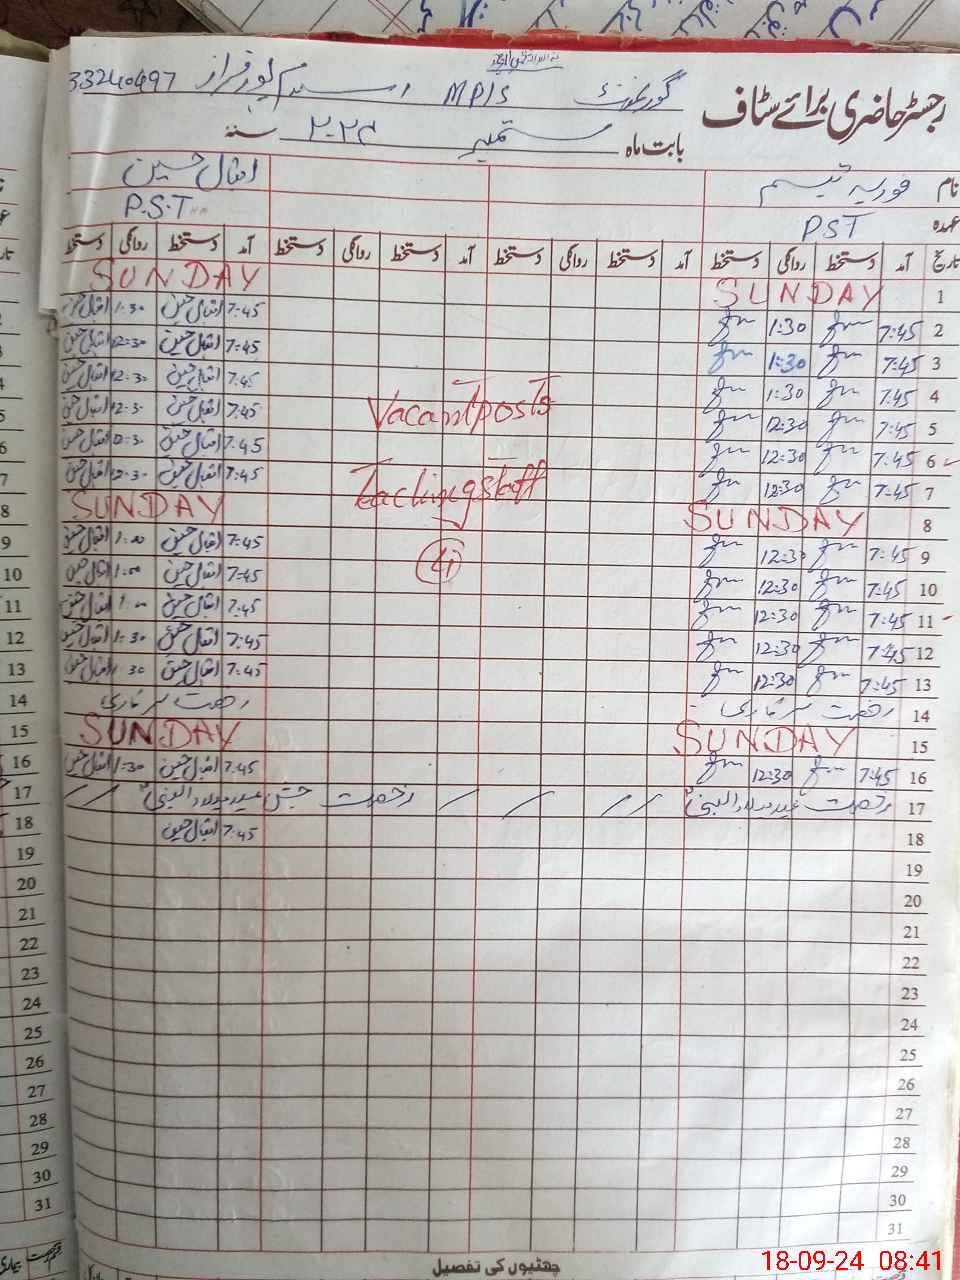 رجسٹر حاضری برائے سٹاف
گورنمنٹ MPIS اسلام پور فراز 33240497
بابت ماہ ستمبر ۲۰۲۴ سنہ
نام فوزیہ تبسم اقبال حسین
عہدہ PST P.S.T
تاریخ آمد دستخط روانگی دستخط آمد دستخط روانگی دستخط آمد دستخط روانگی دستخط آمد دستخط روانگی دستخط
1 SUNDAY SUNDAY
2 7:45 1:30 7:45 اقبال حسین 1:30 اقبال حسین
3 7:45 1:30 7:45 اقبال حسین 12:30 اقبال حسین
4 7:45 1:30 7:45 اقبال حسین 12:30 اقبال حسین
5 7:45 12:30 7:45 اقبال حسین 12:30 اقبال حسین
Vacant posts
6 7:45 12:30 7:45 اقبال حسین 12:30 اقبال حسین
7 7:45 12:30 7:45 اقبال حسین 12:30 اقبال حسین
Teaching staff
8 SUNDAY SUNDAY
9 7:45 12:30 7:45 اقبال حسین 1:00 اقبال حسین
4
10 7:45 12:30 7:45 اقبال حسین 1:00 اقبال حسین
11 7:45 12:30 7:45 اقبال حسین 1:00 اقبال حسین
12 7:45 12:30 7:45 اقبال حسین 1:30 اقبال حسین
13 7:45 12:30 7:45 اقبال حسین 1:30 اقبال حسین
14 رخصت سرکاری رخصت سرکاری
15 SUNDAY SUNDAY
16 7:45 12:30 7:45 اقبال حسین 1:30 اقبال حسین
17 رخصت عید میلاد النبیؐ // / / رخصت جشن عید میلاد النبیؐ //
18 7:45 اقبال حسین
19
20
21
22
23
24
25
26
27
28
29
30
31
چھٹیوں کی تفصیل
18-09-24 08:41